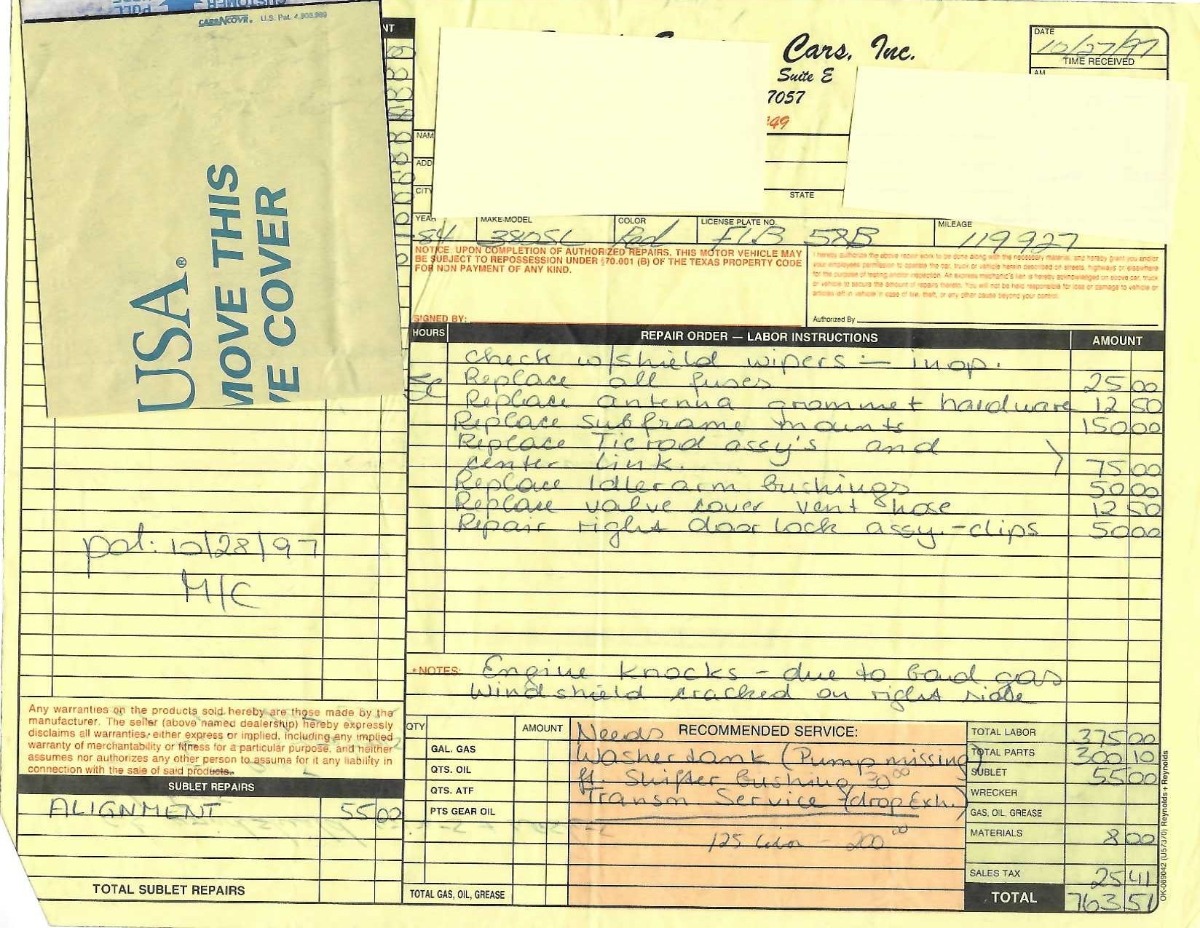 CARSNCOVR. U.S. Pat. 4,903,999
NT
Cars, Inc.
Suite E
7057
49
DATE
10/27/97
TIME RECEIVED
AM
NAM
ADD
CITY
STATE
YEAR MAKE-MODEL COLOR LICENSE PLATE NO. MILEAGE
84 380SL Red FLB 58B 119927
USA®
MOVE THIS
E COVER
NOTICE: UPON COMPLETION OF AUTHORIZED REPAIRS. THIS MOTOR VEHICLE MAY
BE SUBJECT TO REPOSSESSION UNDER §70.001 (B) OF THE TEXAS PROPERTY CODE
FOR NON PAYMENT OF ANY KIND.
SIGNED BY:
I hereby authorize the above repair work to be done along with the necessary material, and hereby grant you and/or
your employees permission to operate the car, truck or vehicle herein described on streets, highways or elsewhere
for the purpose of testing and/or inspection. An express mechanic's lien is hereby acknowledged on above car, truck
or vehicle to secure the amount of repairs thereto. You will not be held responsible for loss or damage to vehicle or
articles left in vehicle in case of fire, theft, or any other cause beyond your control.
Authorized By
HOURS REPAIR ORDER — LABOR INSTRUCTIONS AMOUNT
Check w/shield wipers - inop.
Replace all fuses 25 00
Replace antenna grommet hardware 12 50
Replace subframe mounts 150 00
Replace Tierod assy's and
center link. 75 00
Replace Idlerarm bushings 50 00
Replace valve cover vent hose 12 50
Repair right door lock assy.-clips 50 00
pd: 10/28/97
M/C
*NOTES: Engine knocks - due to bad gas
Windshield cracked on right side
Any warranties on the products sold hereby are those made by the
manufacturer. The seller (above named dealership) hereby expressly
disclaims all warranties, either express or implied, including any implied
warranty of merchantability or fitness for a particular purpose, and neither
assumes nor authorizes any other person to assume for it any liability in
connection with the sale of said products.
SUBLET REPAIRS
ALIGNMENT 55 00
TOTAL SUBLET REPAIRS
QTY AMOUNT
GAL. GAS
QTS. OIL
QTS. ATF
PTS GEAR OIL
TOTAL GAS, OIL, GREASE
RECOMMENDED SERVICE:
Needs
Washer tank (Pump missing)
ft. Shifter bushing 30 00
Transm Service (drop Exh.)
125 labor - 200 00
TOTAL LABOR 375 00
TOTAL PARTS 300 10
SUBLET 55 00
WRECKER
GAS, OIL, GREASE
MATERIALS 8 00
SALES TAX 25 41
TOTAL 763 51
OK-069042 (U57370) Reynolds + Reynolds